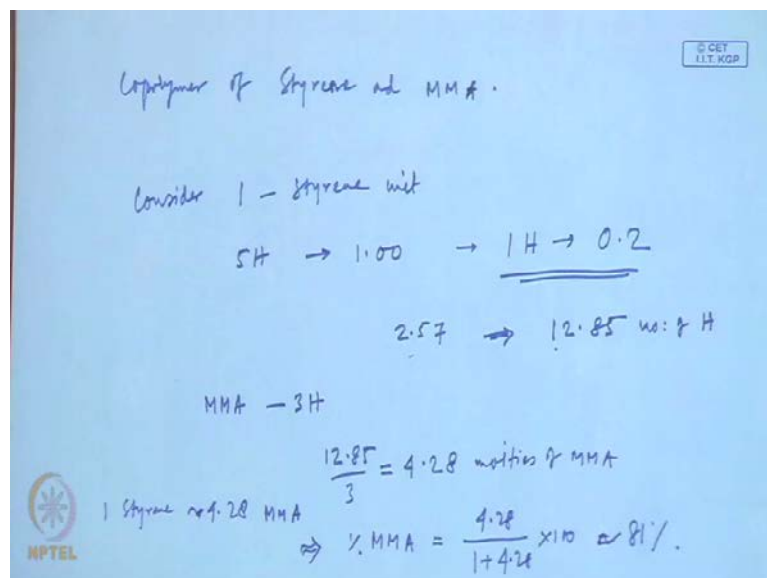 © CET
I.I.T. KGP
Copolymer of Styrene ad MMA.
Consider 1 – Styrene unit
5H → 1.00 → 1H → 0.2
2.57 → 12.85 no: of H
MMA – 3H
12.85
3
= 4.28 moities of MMA
1 Styrene 4.28 MMA
⇒ % MMA = 4.28 / 1+4.28 ×100 ≈ 81%.
NPTEL